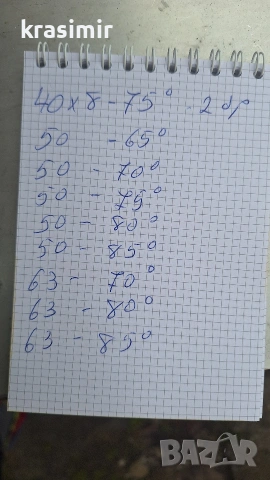 krasimir
40x8-75° - 2 бр
50 - 65°
50 - 70°
50 - 75°
50 - 80°
50 - 85°
63 - 70°
63 - 80°
63 - 85°
BAZAR